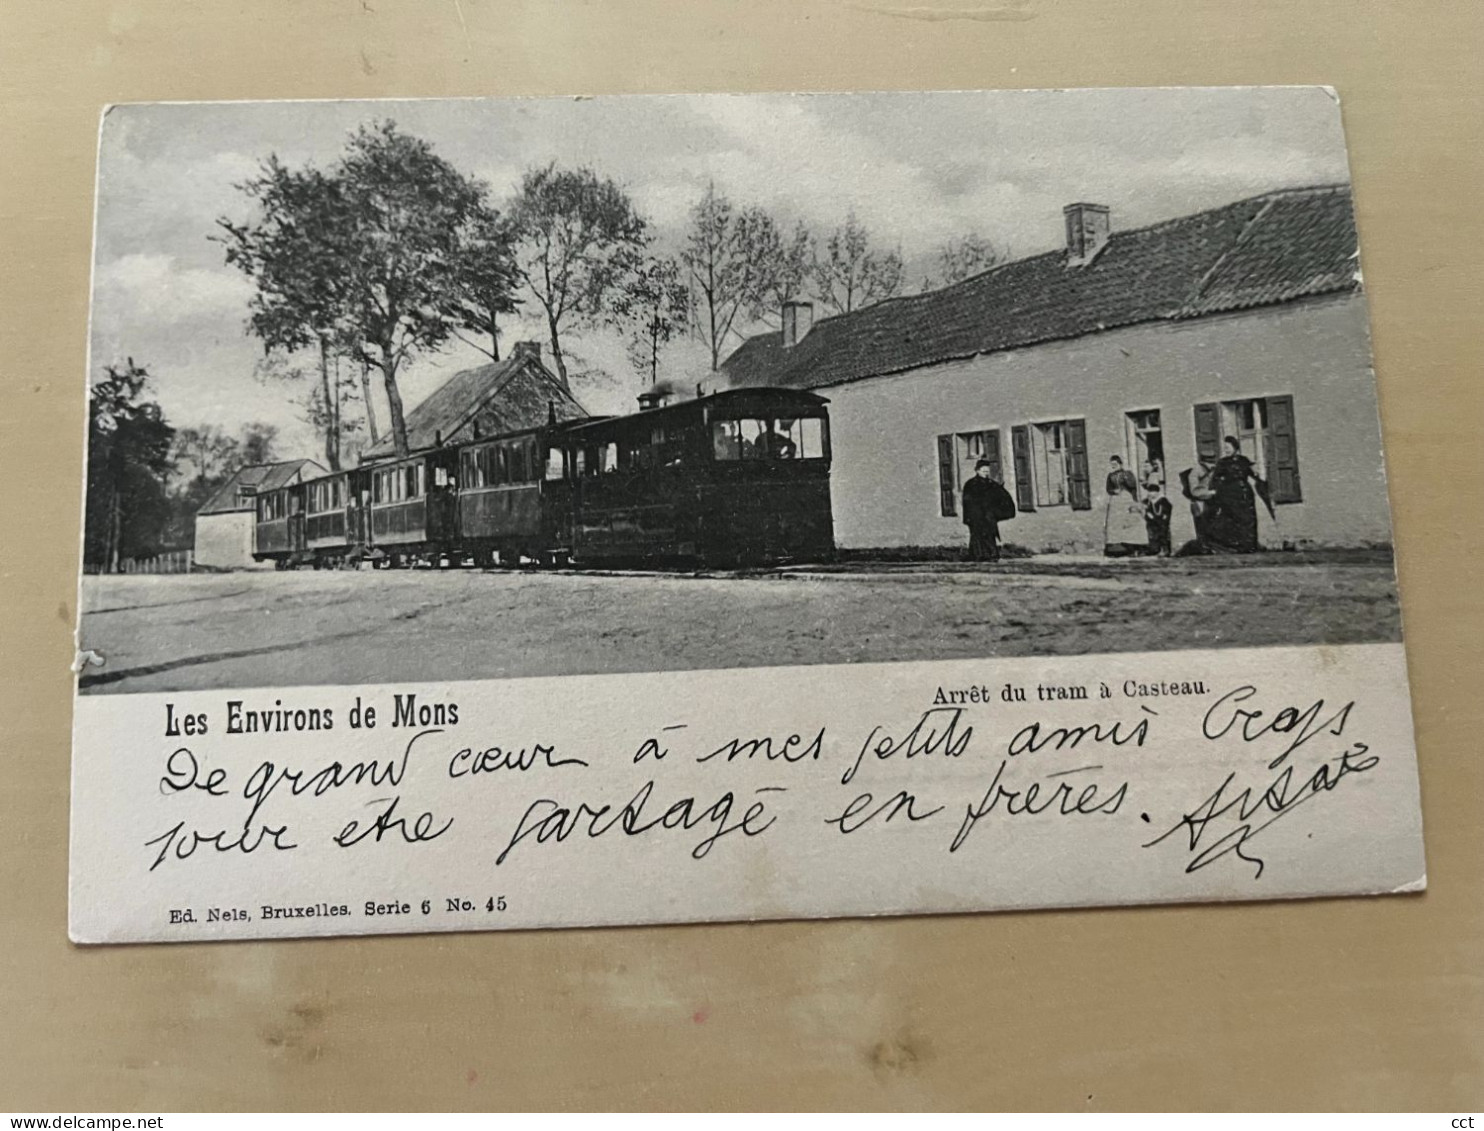 Arrêt du tram à Casteau.
Les Environs de Mons
De grand cœur à mes petits amis
pour être partagé en frères.
Ed. Nels, Bruxelles. Serie 6 No. 45
cct